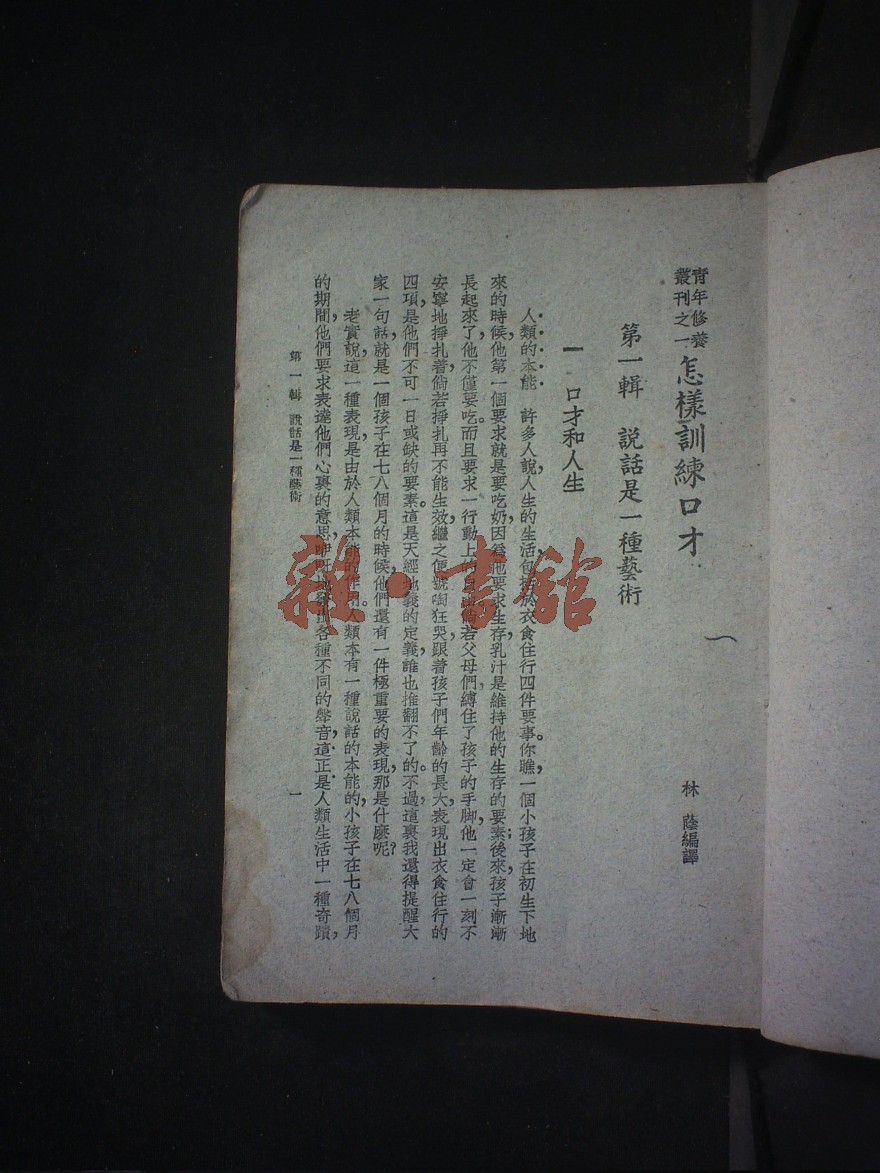 青年修養
叢刊之一
怎樣訓練口才
林　蔭編譯
第一輯　說話是一種藝術
一　口才和人生
人類的本能　許多人說，人生的生活包括於衣食住行四件要事。你瞧，一個小孩子在初生下地
來的時候，他第一個要求就是要吃奶，因為他要求生存，乳汁是維持他的生存的要素；後來，孩子漸漸
長起來了，他不僅要吃。而且要求一行動上的自由。倘若父母們縛住了孩子的手脚，他一定會一刻不
安寧地掙扎着，倘若掙扎再不能生效，繼之便號啕狂哭，跟着孩子們年齡的長大，表現出衣食住行的
四項，是他們不可一日或缺的要素。這是天經地義的定義，誰也推翻不了的。不過，這裏我還得提醒大
家一句話，就是一個孩子在七八個月的時候，他們還有一件極重要的表現，那是什麼呢？
老實說，這一種表現，是由於人類本能的作用。人類本有一種說話的本能的，小孩子在七八個月
的期間，他們要求表達他們心裏的意思，咿呀地發出各種不同的聲音，這正是人類生活中一種奇蹟，
第一輯　說話是一種藝術
一
雜·書館